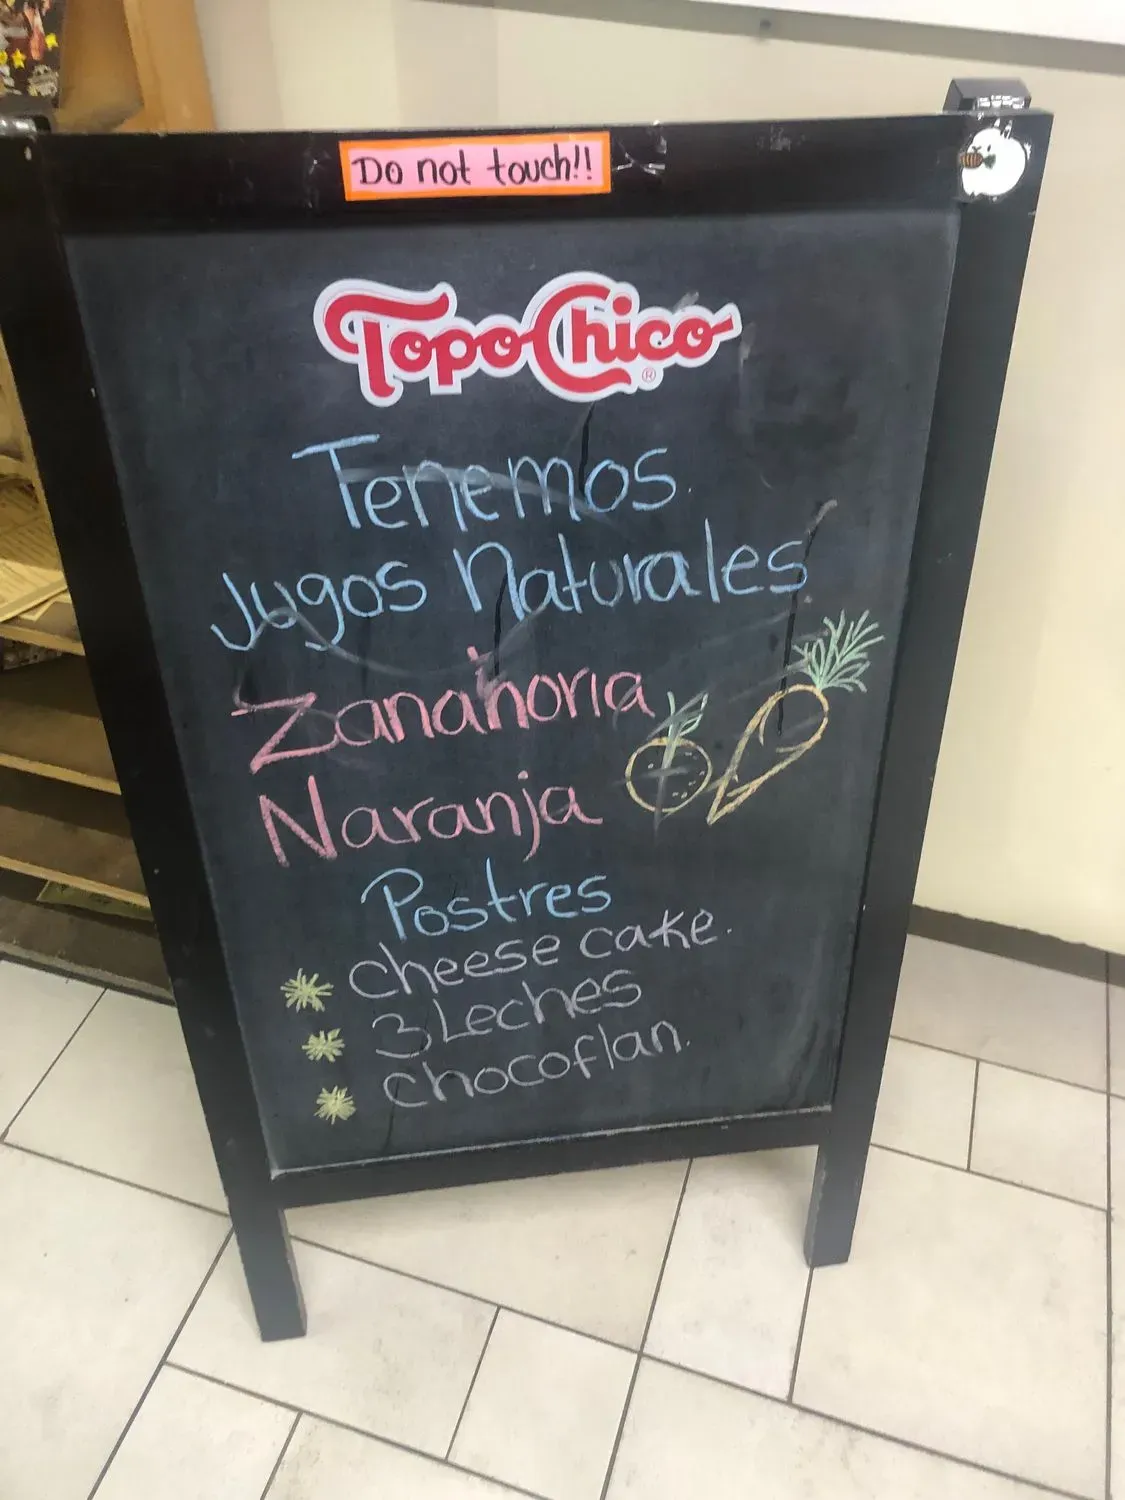 Do not touch!!
Topo Chico
®
Tenemos
Jugos Naturales
Zanahoria
Naranja
Postres
cheese cake.
3 Leches
chocoflan.